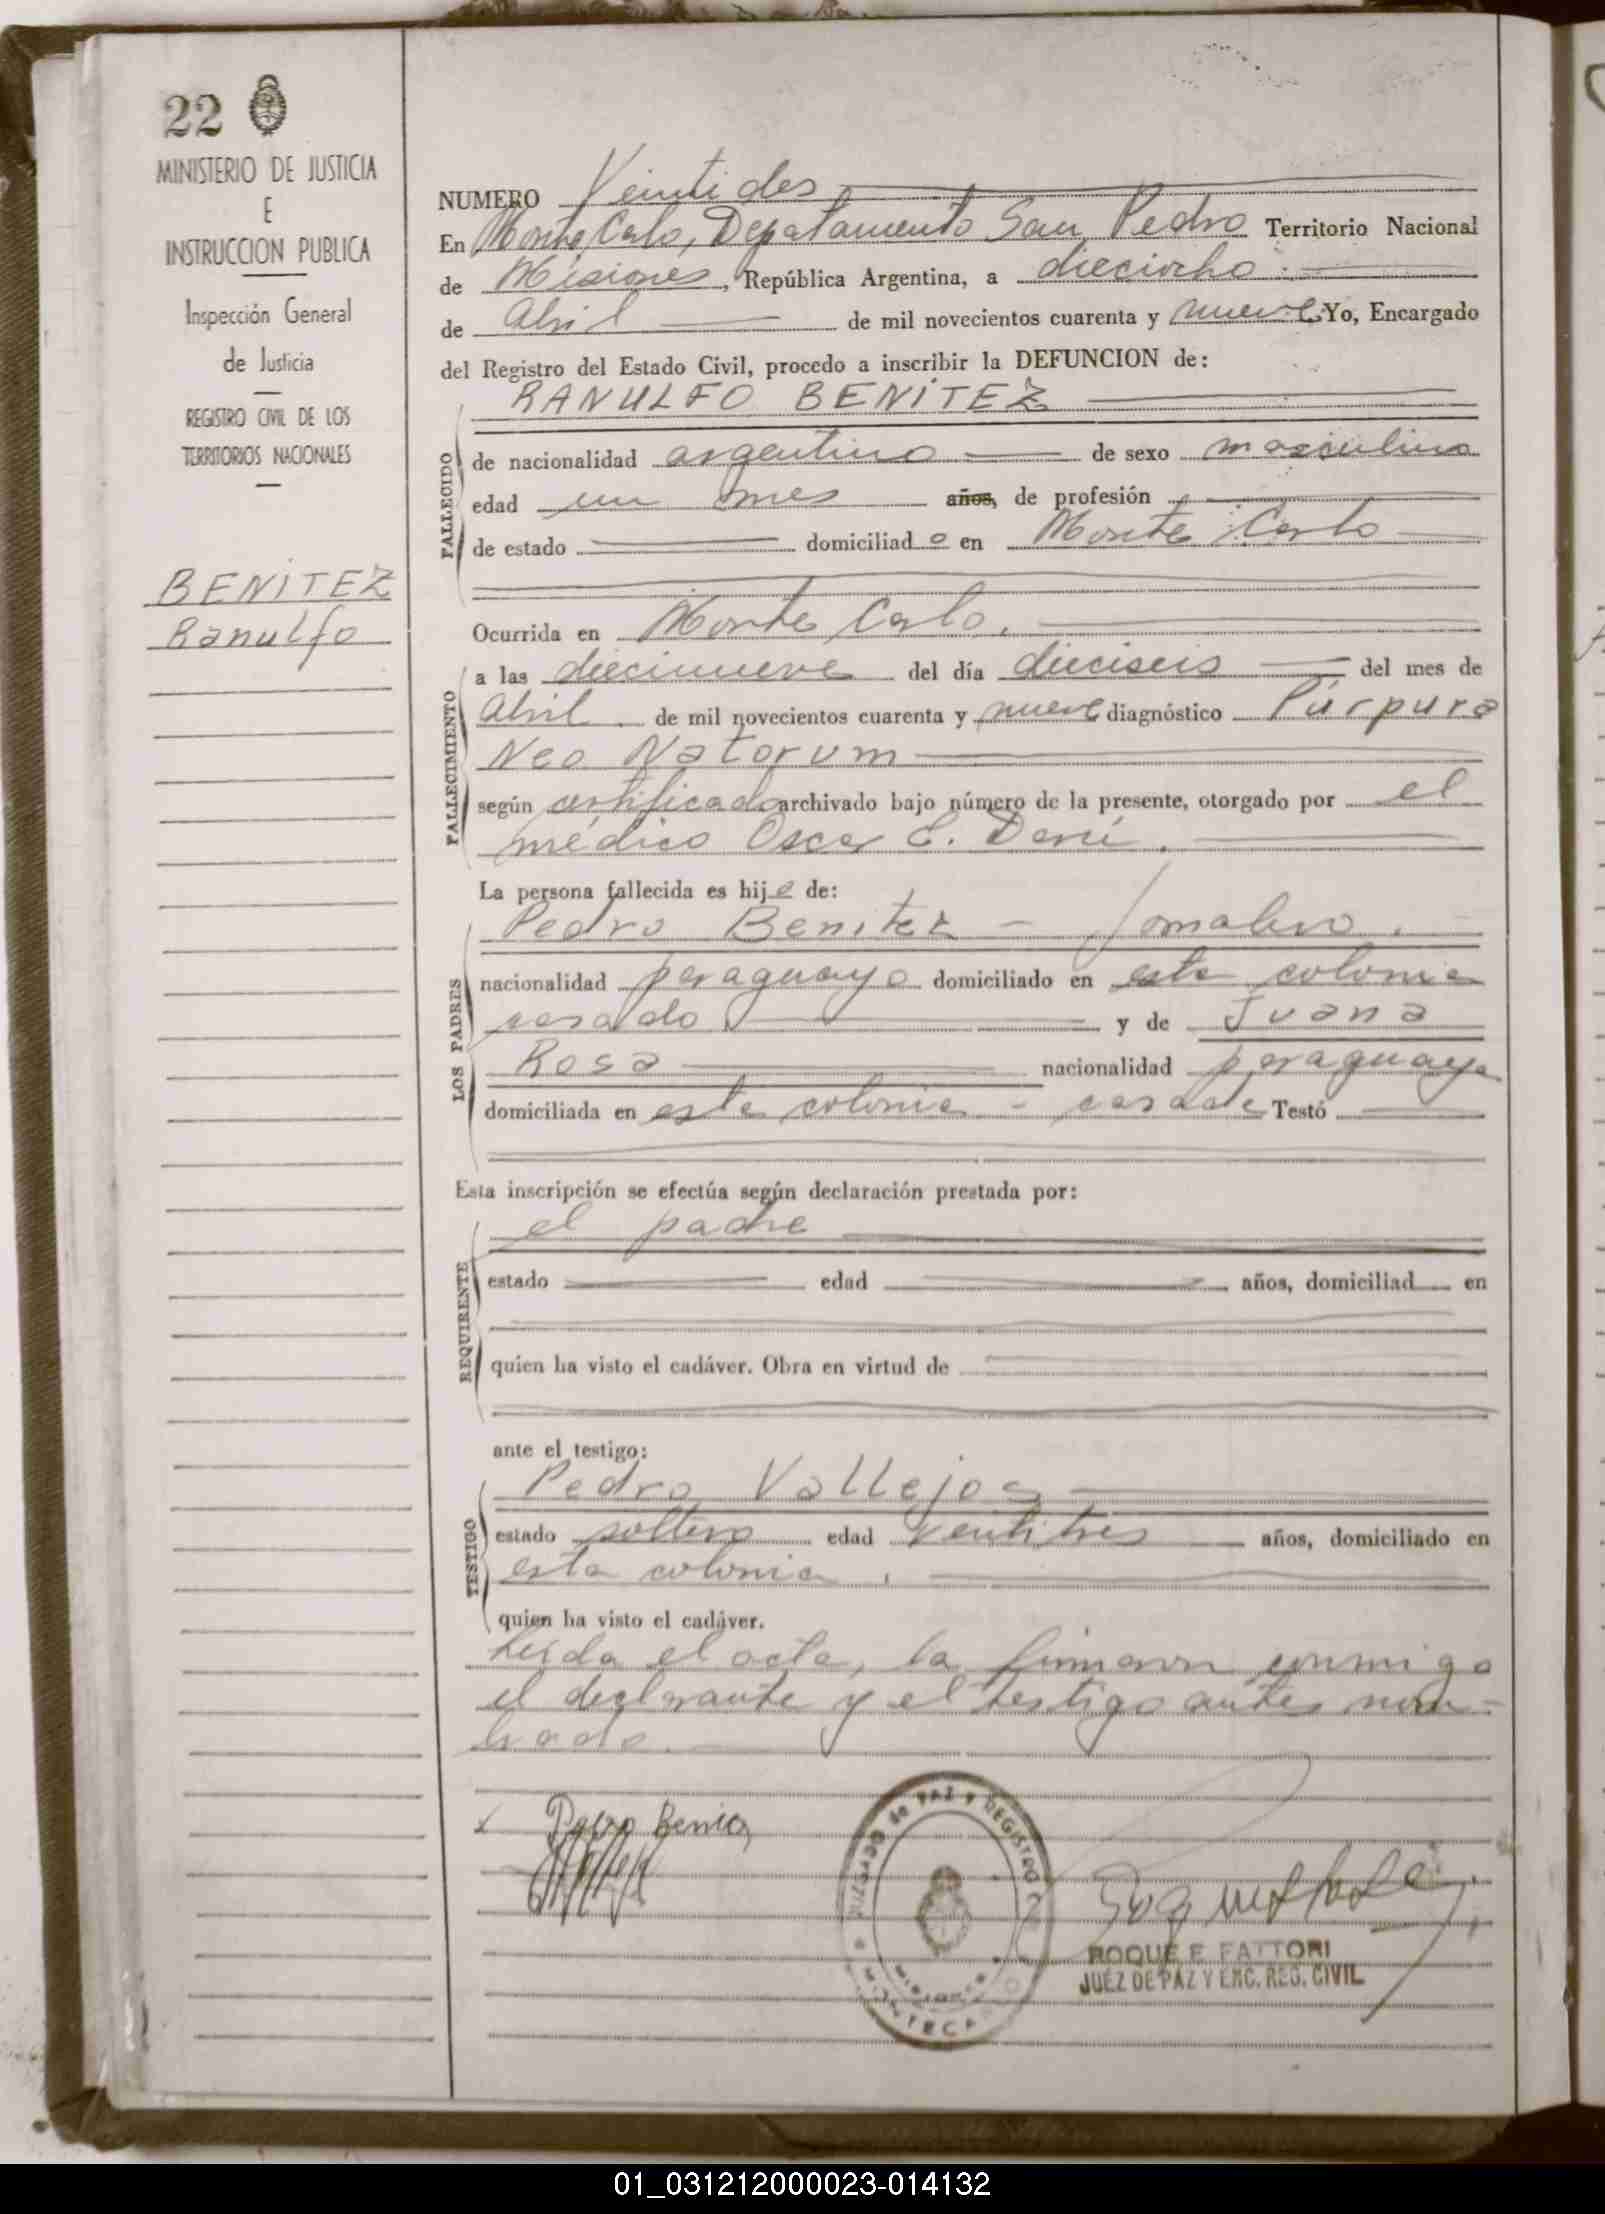 22
MINISTERIO DE JUSTICIA
E
INSTRUCCION PUBLICA
Inspección General
de Justicia
REGISTRO CIVIL DE LOS
TERRITORIOS NACIONALES
BENITEZ
Ranulfo
NUMERO Veintidos
En Monte Carlo, Depatamento San Pedro Territorio Nacional
de Misiones, República Argentina, a dieciocho
de Abril de mil novecientos cuarenta y nueve Yo, Encargado
del Registro del Estado Civil, procedo a inscribir la DEFUNCION de:
RANULFO BENITEZ
FALLECIDO
de nacionalidad argentino de sexo masculino
edad un mes años, de profesión
de estado domiciliado en Monte Carlo
Ocurrida en Monte Carlo.
FALLECIMIENTO
a las diecinueve del día dieciseis del mes de
Abril de mil novecientos cuarenta y nueve diagnóstico Púrpura
Neo Natorum
según certificado archivado bajo número de la presente, otorgado por el
médico Oscar E.
La persona fallecida es hijo de:
LOS PADRES
Pedro Benitez - Jornalero.
nacionalidad paraguayo domiciliado en esta colonia
casado y de Juana
Rosa nacionalidad paraguaya
domiciliada en esta colonia - casada Testó
Esta inscripción se efectúa según declaración prestada por:
REQUIRENTE
el padre
estado edad años, domiciliad en
quien ha visto el cadáver. Obra en virtud de
ante el testigo:
TESTIGO
Pedro Vallejos
estado soltero edad veintitres años, domiciliado en
esta colonia.
quien ha visto el cadáver.
Leida el acta, la firmaron conmigo
el declarante y el testigo antes nom-
brado.
JUZGADO de PAZ Y REGISTRO
MISIONES
MONTECARLO
ROQUE E. FATTORI
JUEZ DE PAZ Y ENC. REG. CIVIL
01_031212000023-014132